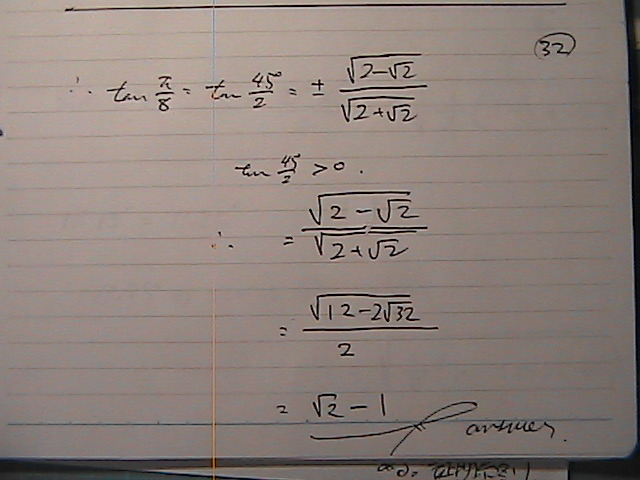 32
∴ tan π/8 = tan 45°/2 = ± √(2-√2)/√(2+√2)
tan 45°/2 > 0.
∴ = √(2-√2)/√(2+√2)
= √(12-2√32)/2
= √2 - 1
answer.